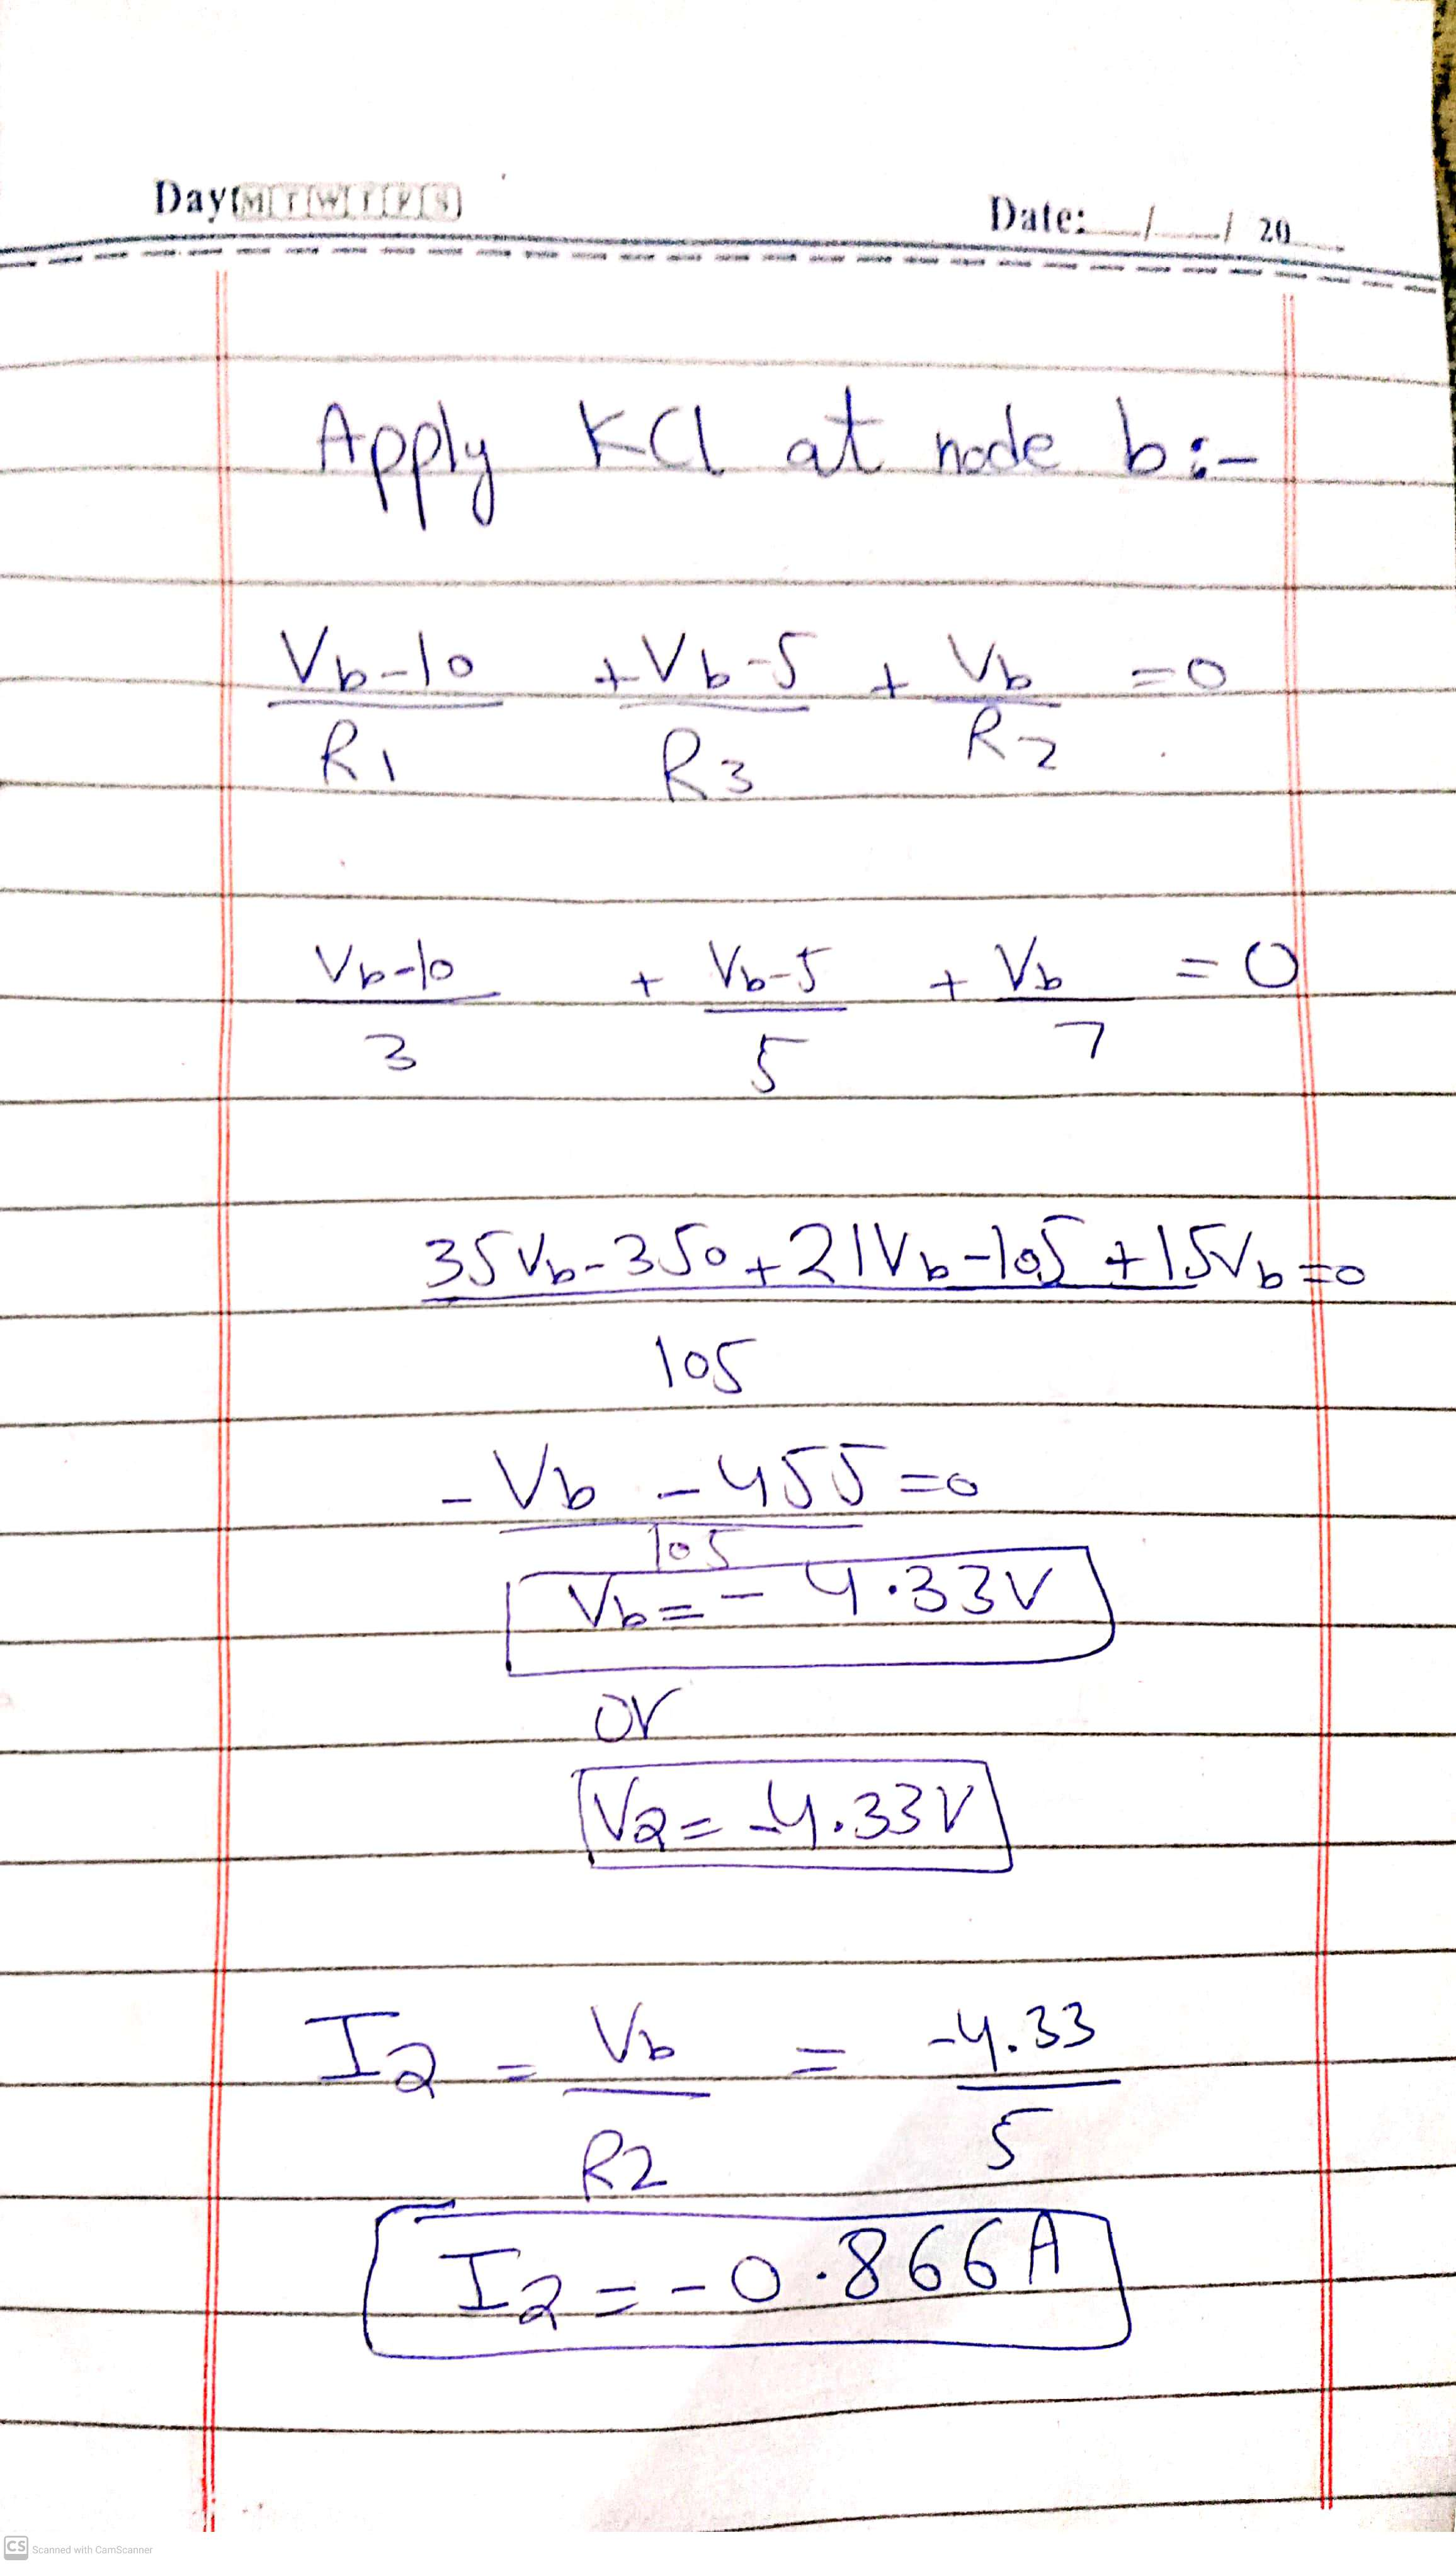 Day: M T W T F S
Date: __/__/ 20__
Apply KCl at node b:-
Vb-10 + Vb-5 + Vb = 0
R1 R3 R2
Vb-10 + Vb-5 + Vb = 0
3 5 7
35Vb-350+21Vb-105+15Vb=0
105
-Vb - 455 = 0
105
Vb = - 4.33V
or
V2 = -4.33V
I2 = Vb = -4.33
R2 5
I2 = -0.866A
CS Scanned with CamScanner